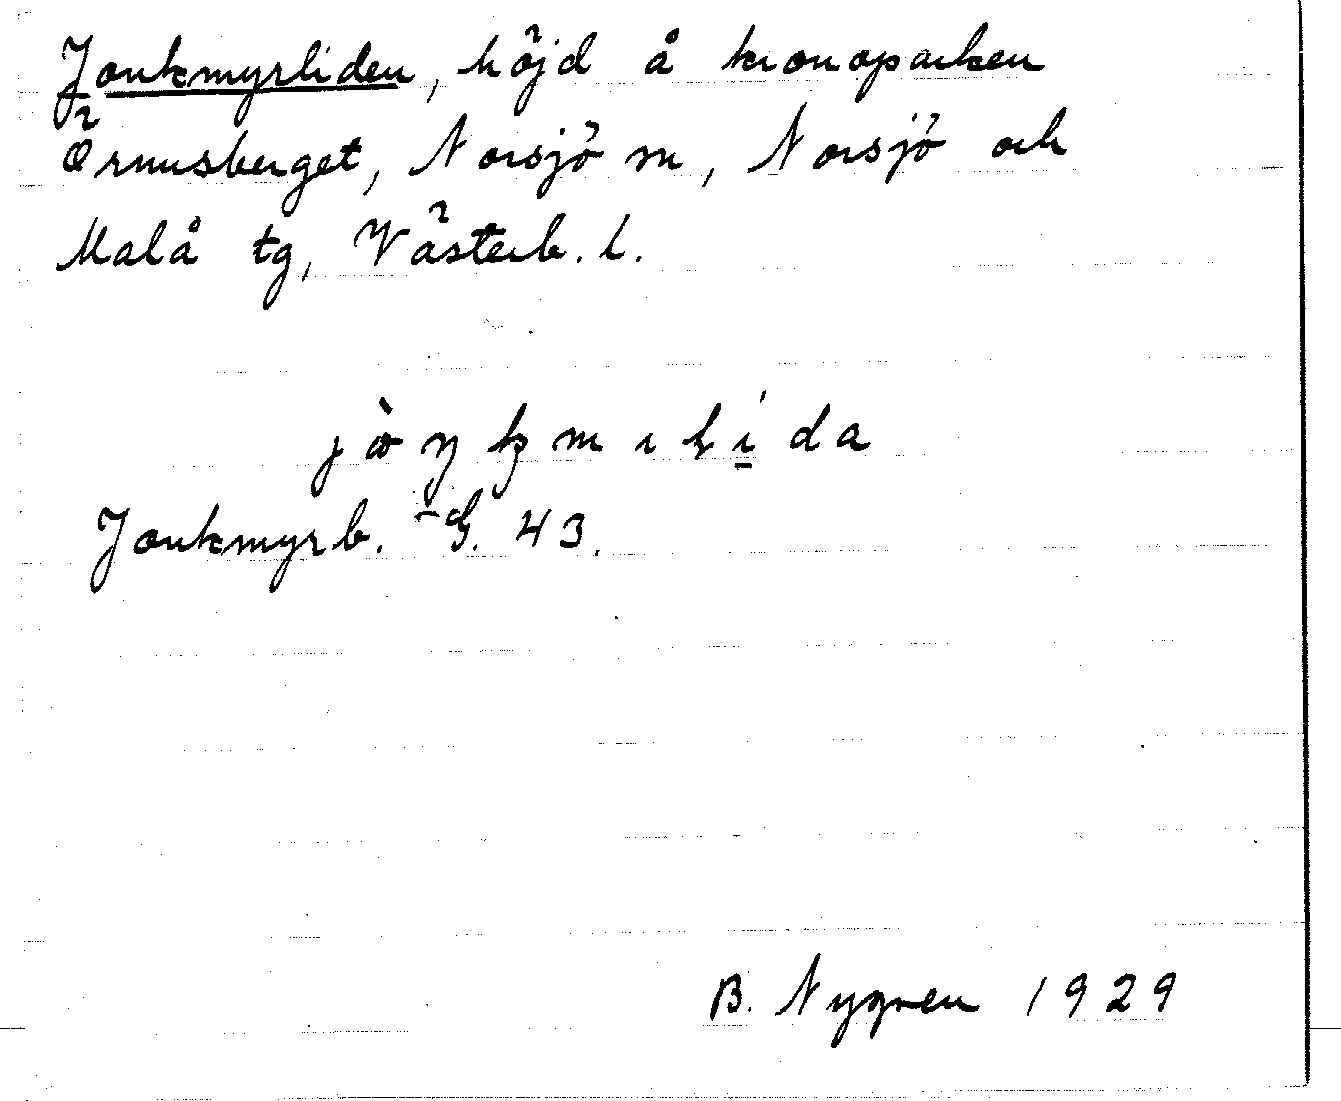 Jonkmyrliden, höjd å kronoparken
Örnusberget, Norsjö sn, Norsjö och
Malå tg, Västerb. l.
Jonkmyrb. G. 43.
B. Nygren 1929